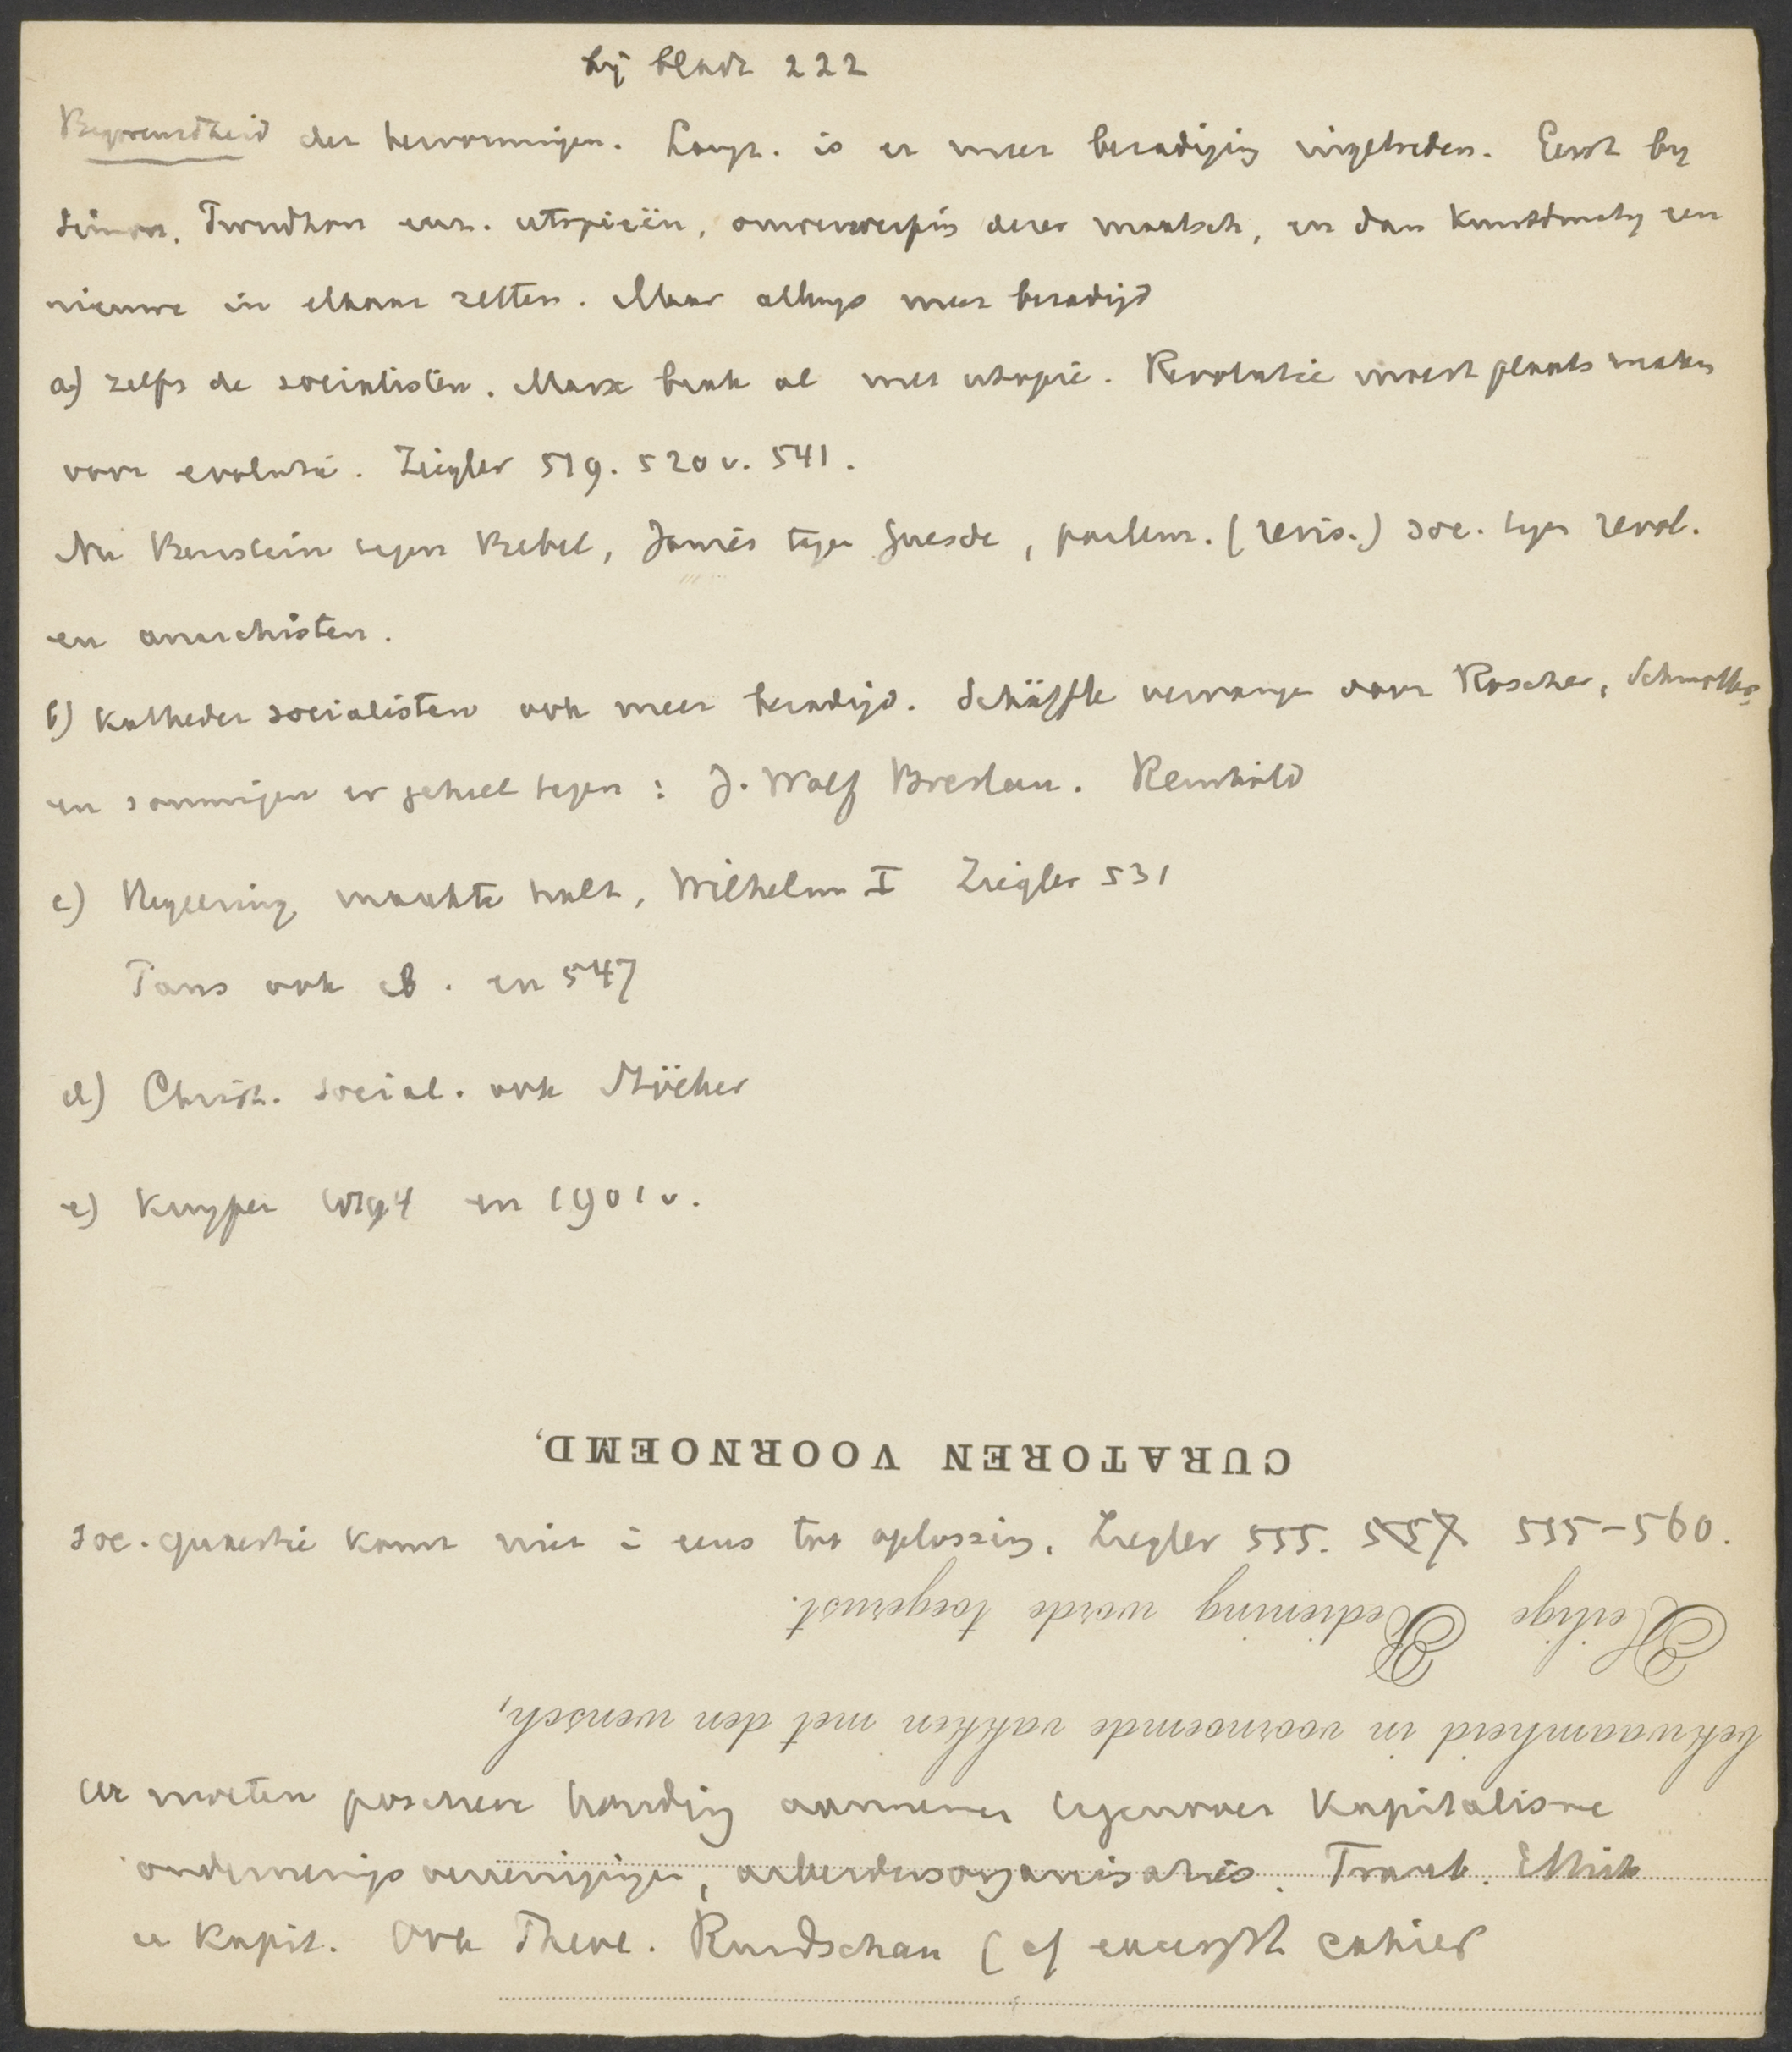 bij bladz 222
Begrensdheid der hervormingen. Langz. is er meer bezadiging ingetreden. Eerst bij
Simon, Proudhon enz. utopieën, omverwerping dezer maatsch, en dan kunstmatig een
nieuwe in elkaar zetten. Maar allengs meer bezadigd
a) zelfs de socialisten. Marx brak al met utopie. Revolutie moest plaats maken
voor evolutie. Ziegler 519. 520 v. 541.
Nu Bernstein tegen Bebel, Jaurès tegen Guesde, parlem. (revis.) soc. tegen revol.
en anarchisten.
b) Katheder socialisten ook meer bezadigd. Schäffle vervangen door Roscher, Schmoller,
en sommigen er geheel tegen: J. Wolf Breslau. Reinhold
c) Regeering maakte halt, Wilhelm I Ziegler 531
Paus ook ib. en 547
d) Christ. social. ook Stöcker
e) Kuyper en 1901 v.
CURATOREN VOORNOEMD,
Soc. quaestie komt niet in eens tot oplossing. Ziegler 555. 557 555-560.
Heilige Bediening worde toegerust.
bekwaamheid in voornoemde vakken met den wensch,
We moeten positieve houding aannemen tegenover Kapitalisme
ondernemings vereenigingen, arbeidersorganisaties. Traub. Ethik
u Kapit. Ook Theol. Rundschau (cf excerpt cahier